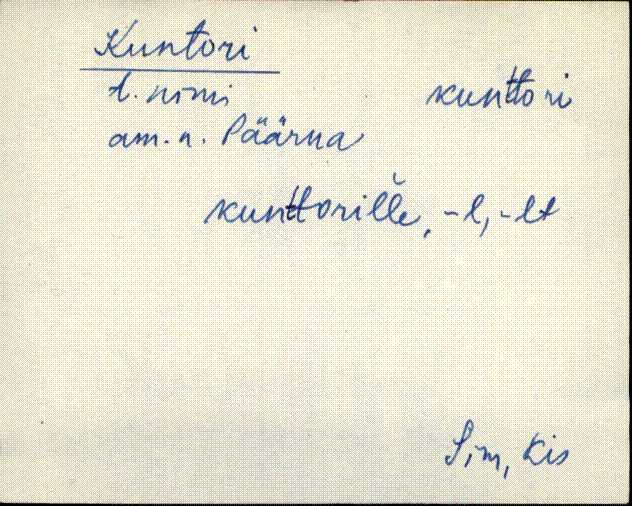 Kuntori
t. nimi
kunttori
am. n. Päärna
kunttorillĕ, -l, -lt
Sim, Kis